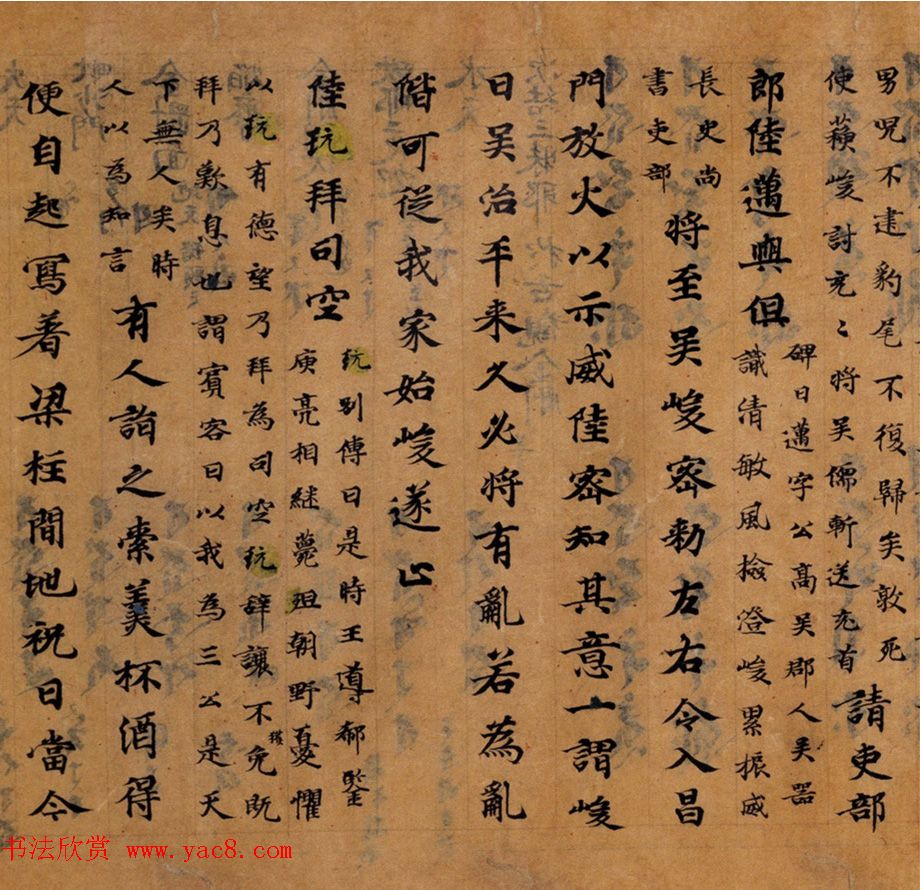 男児不建豹尾不復歸矣敦死
使蘓峻討充〻將吴儒斬送充首
請吏部
郎陸邁與俱
碑曰邁字公高吴郡人吴器
識清敏風撿澄峻累振威
長史尚
書吏部
將至吴峻密勑左右令入昌
門放火以示威陸密知其意亠謂峻
曰吴治平来久必將有亂若為亂
偕可從我家始峻遂止
陸玩拜司空
玩別傳曰是時王導郗鑒
庾亮相継薨殂朝野憂懼
以玩有德望乃拜為司空玩辝讓不獲免既
拜乃歎息也謂賓客曰以我為三公是天
下無人矣時
人以為知言
有人詣之索羙杯酒得
便自起寫著梁柱間地祝曰當今
书法欣赏 www.yac8.com